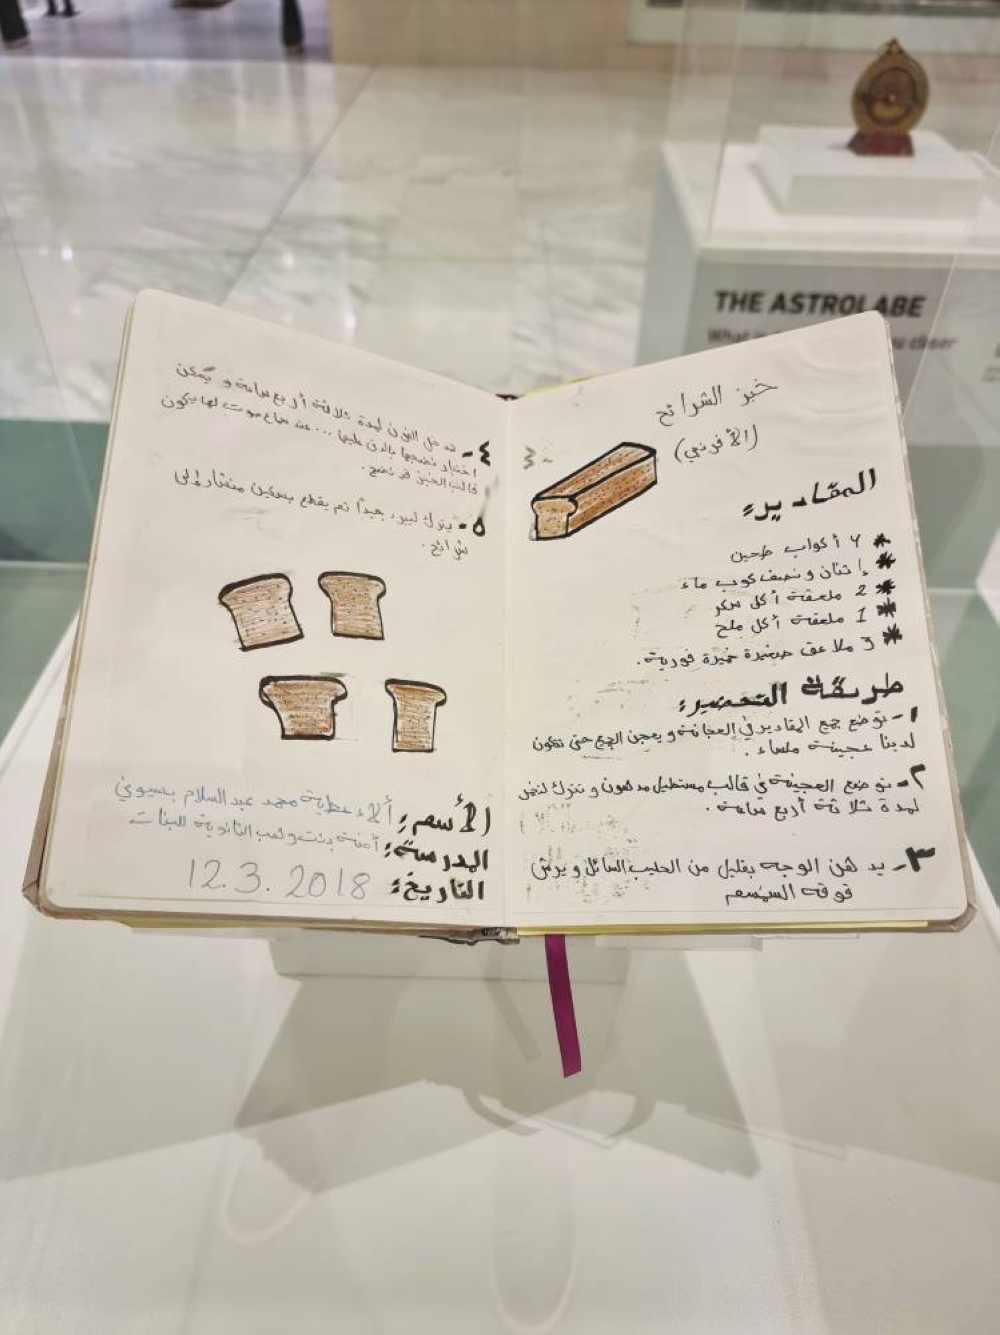 خبز الشرائح
(الأفرنجي)
المقادير:
* ٦ أكواب طحين
* إثنان ونصف كوب ماء
* 2 ملعقة أكل سكر
* 1 ملعقة أكل ملح
* 3 ملاعق صغيرة خميرة فورية.
طريقة التحضير:
١- توضع جميع المقادير في العجانة ويعجن الجميع حتى تتكون
لدينا عجينة ملساء.
٢- توضع العجينة في قالب مستطيل مدهون وتترك لتخمر
لمدة ثلاثة أربع ساعة.
٣- يدهن الوجه بقليل من الحليب السائل ويرش
فوقه السمسم
٤- تدخل الفرن لمدة ثلاثة أربع ساعة و يمكن
اختبار نضجها بالدق عليها... عند سماع صوت لها يكون
قالب الخبز قد نضج.
٥- يترك ليبرد جيداً ثم يقطع بسكين منشار إلى
شرائح.
الأسم: ألاء عطية محمد عبدالسلام بسيوني
المدرسة: آمنة بنت وهب الثانوية للبنات
التاريخ: 12.3.2018
THE ASTROLABE